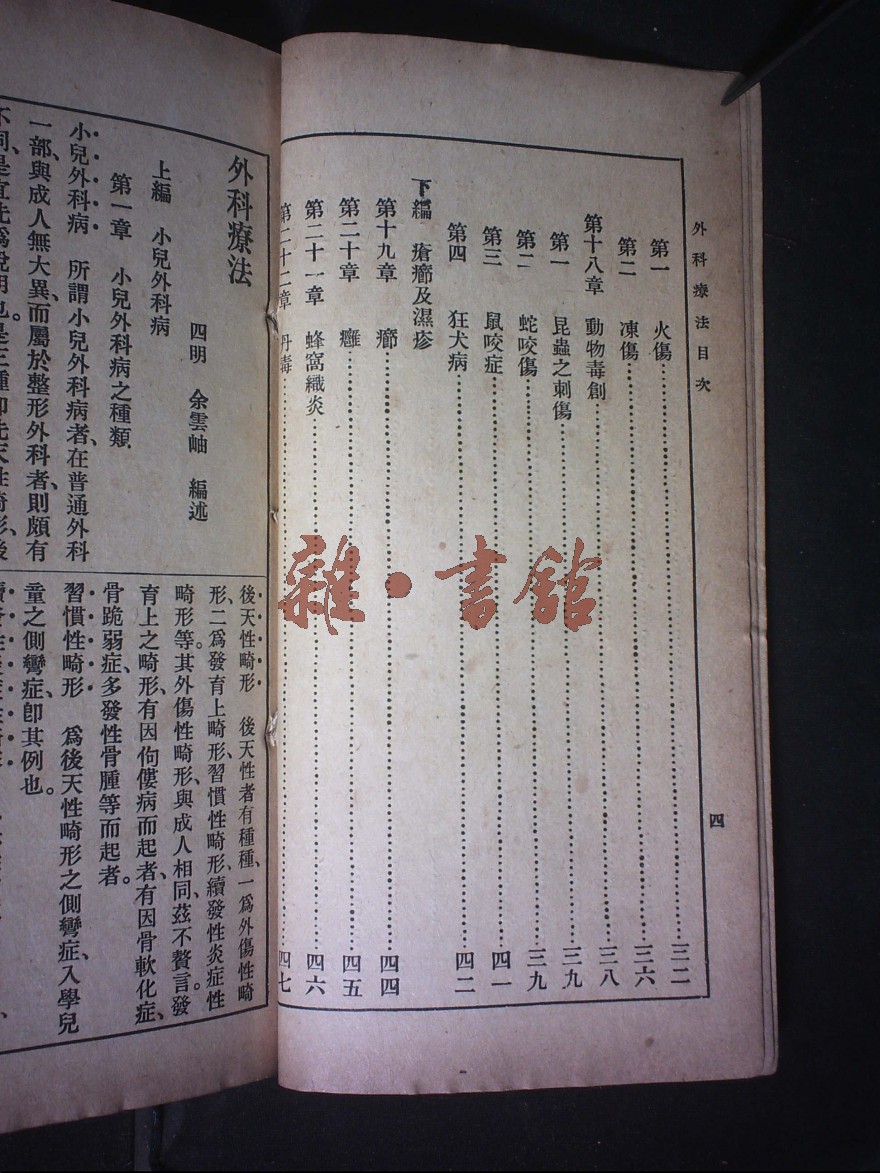 外科療法目次
四
第一 火傷 三二
第二 凍傷 三六
第十八章 動物毒創 三八
第一 昆蟲之刺傷 三九
第二 蛇咬傷 三九
第三 鼠咬症 四一
第四 狂犬病 四二
下編 瘡癤及濕疹
第十九章 癤 四四
第二十章 癰 四五
第二十一章 蜂窩織炎 四六
第二十二章 丹毒 四七
雜·書館
外科療法
四明 余雲岫 編述
上編 小兒外科病
第一章 小兒外科病之種類
小兒外科病 所謂小兒外科病者、在普通外科
一部、與成人無大異、而屬於整形外科者、則頗有
不同、是宜先爲說明也。是三種、卽先天性畸形、後
後天性畸形 後天性者有種種、一爲外傷性畸
形、二爲發育上畸形、習慣性畸形、續發性炎症性
畸形等。其外傷性畸形、與成人相同、茲不贅言。發
育上之畸形、有因佝僂病而起者、有因骨軟化症、
骨跪弱症、多發性骨腫等而起者。
習慣性畸形 爲後天性畸形之側彎症、入學兒
童之側彎症、卽其例也。